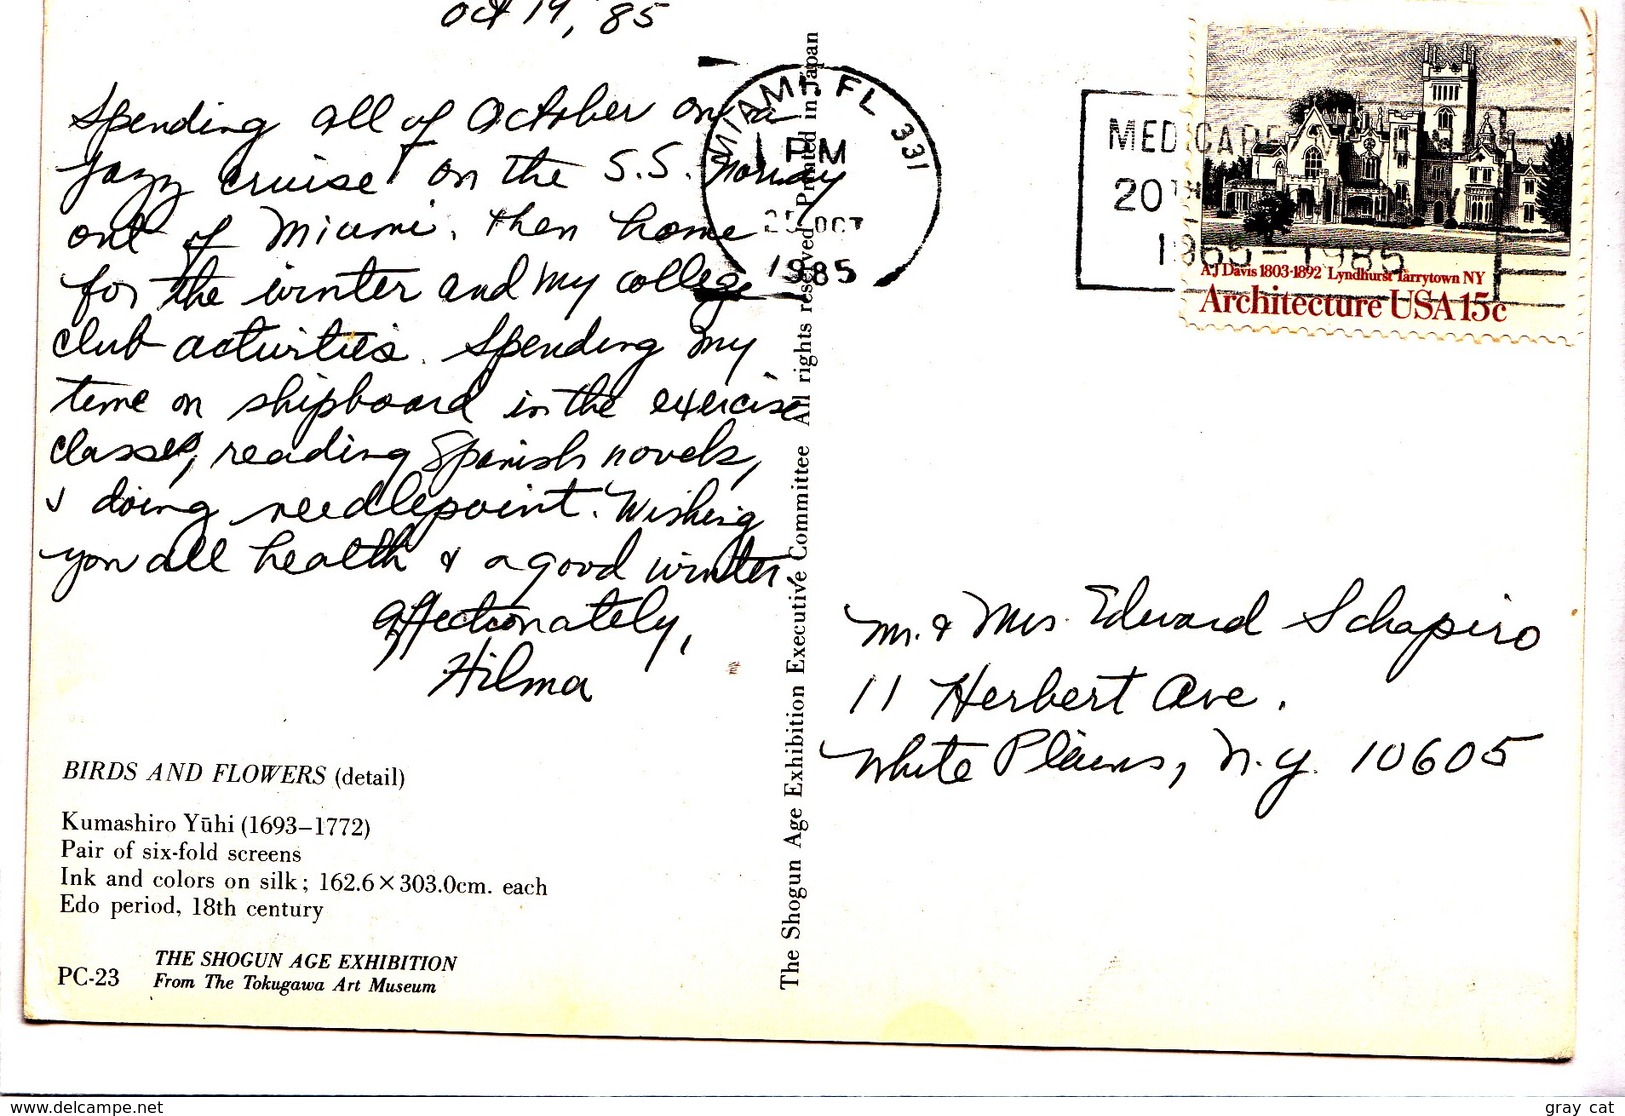 Oct 19, '85
Spending all of October on a
jazz cruise on the S.S. Norway
out of Miami. Then home
for the winter and my college
club activities. Spending my
time on shipboard in the exercise
classes, reading Spanish novels,
& doing needlepoint. Wishing
you all health & a good winter.
Affectionately,
Hilma
BIRDS AND FLOWERS (detail)
Kumashiro Yūhi (1693–1772)
Pair of six-fold screens
Ink and colors on silk; 162.6×303.0cm. each
Edo period, 18th century
PC-23
THE SHOGUN AGE EXHIBITION
From The Tokugawa Art Museum
The Shogun Age Exhibition Executive Committee All rights reserved Printed in Japan
MIAMI, FL 331
PM
25 OCT
1985
MEDICARE
20TH
1965-1985
AJ Davis 1803-1892 Lyndhurst Tarrytown NY
Architecture USA 15c
Mr. & Mrs. Edward Schapiro
11 Herbert Ave.
White Plains, N.Y. 10605
www.delcampe.net
gray cat